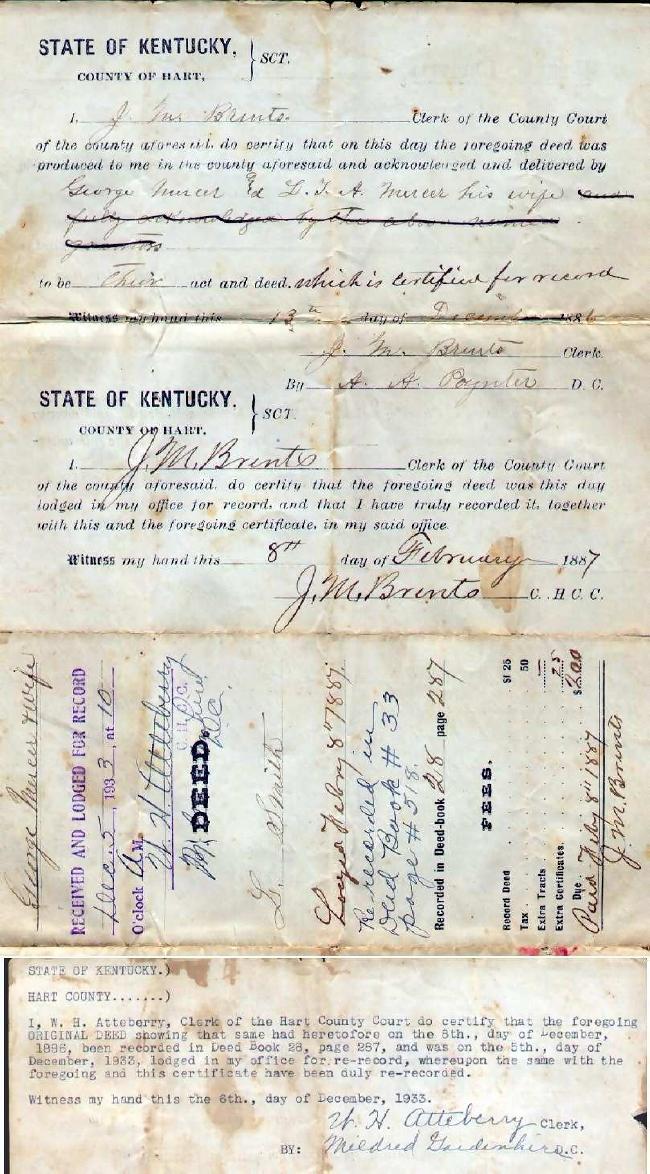 STATE OF KENTUCKY, } SCT.
COUNTY OF HART,
I, J. M. Brents. Clerk of the County Court
of the county aforesaid, do certify that on this day the foregoing deed was
produced to me in the county aforesaid and acknowledged and delivered by
George Mercer L. T. A. Mercer his wife and
fully acknowledged by the above named
grantors
to be their act and deed. which is certified for record
Witness my hand this 13th day of December 1886
J. M. Brents Clerk.
By A. A. Poynter D. C.
STATE OF KENTUCKY, } SCT.
COUNTY OF HART.
I, J. M. Brents Clerk of the County Court
of the county aforesaid, do certify that the foregoing deed was this day
lodged in my office for record, and that I have truly recorded it, together
with this and the foregoing certificate, in my said office.
Witness my hand this 8th day of February 1887
J. M. Brents C. H C. C.
George Mercer & wife
RECEIVED AND LODGED FOR RECORD
Dec. 5, 1933, at 10
O'clock A M.
W. H. Atteberry
C. H. C. C.
By D.C.
DEED.
L. Smith
Lodged Febry 8th 1887
Re recorded in
Deed Book # 33
page # 518.
Recorded in Deed-book 28 page 287
FEES.
Record Deed $1 25
Tax 50
Extra Tracts
Extra Certificates. 25
Due $2.00
Paid Feby 8th 1887
J. M. Brents
STATE OF KENTUCKY.)
HART COUNTY.......)
I, W. H. Atteberry, Clerk of the Hart County Court do certify that the foregoing
ORIGINAL DEED showing that same had heretofore on the 8th., day of December,
1896, been recorded in Deed Book 28, page 287, and was on the 5th., day of
December, 1933, lodged in my office for re-record, whereupon the same with the
foregoing and this certificate have been duly re-recorded.
Witness my hand this the 6th., day of December, 1933.
W. H. Atteberry Clerk,
BY: Mildred Gardenhire D.C.